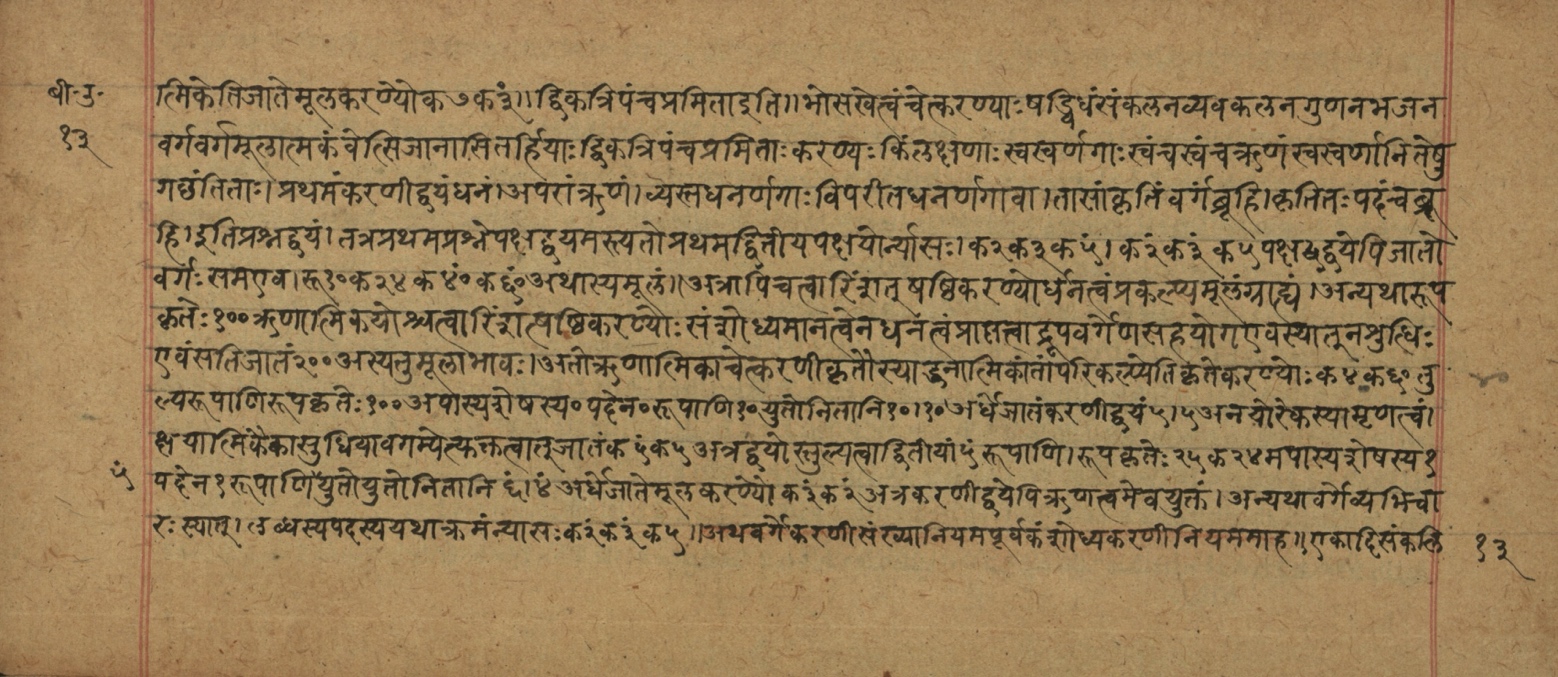 बी॰उ॰
१३
त्मिकेतिजातेमूलकरण्यौक७कं३ं॥द्विकत्रिपंचप्रमिताइति॥भोसखेत्वंचेत्करण्याःषड्विधंसंकलनव्यवकलनगुणनभजन
वर्गवर्गमूलात्मकंवेत्सिजानासितर्हियाःद्विकत्रिपंचप्रमिताःकरण्यःकिंलक्षणाःस्वस्वर्णगाःस्वंचस्वंचऋणंस्वस्वर्णानितेषु
गछंतिताः।प्रथमंकरणीद्वयंधनं।अपरांऋणं।व्यस्तधनर्णगाःविपरीतधनर्णगावा।तासांकृतिंवर्गंब्रूहि।कृतितःपदंचब्रू
हि।इतिप्रश्नद्वयं।तत्रप्रथमप्रश्नेपक्षद्वयमस्त्यतोप्रथमद्वितीयपक्षयोर्न्यासः।क२क३क५ं।क२ंक३ंक५पक्षद्वयेपिजातो
वर्गःसमएव।रू१०क२४क४०ंक६०ंअथास्यमूलं॥अत्रापिचत्वारिंशत्षष्ठिकरण्योर्धनत्वंप्रकल्प्यमूलंग्राह्यं।अन्यथारूप
कृतेः१००ऋणात्मिकयोश्चत्वारिंशत्षष्ठिकरण्योःसंशोध्यमानत्वेनधनत्वंप्राप्तत्वाद्रूपवर्गेणसहयोगएवस्यात्नशुद्धिः
एवंसतिजातं२००अस्यतुमूलाभावः।अतोऋणात्मिकाचेत्करणीकृतौस्याद्धनात्मिकांतांपरिकल्प्येतिकृतेकरण्योःक४०क६०तु
ल्यरूपाणिरूपकृतेः१००अपास्यशेषस्य०पदेन०रूपाणि१०युतोनितानि१०।१०अर्धेजातंकरणीद्वयं५।५अनयोरेकस्यामृणत्वं।
क्षयात्मिकैकासुधियावगम्येत्युक्तत्वात्जातंक५ंक५अत्रद्वयोस्तुल्यत्वाद्वितीयां५ंरूपाणि।रूपकृतेः२५क२४मपास्यशेषस्य१
५ं
पदेन१रूपाणियुतोयुतोनितानि६ं।४ंअर्धेजातेमूलकरण्यौक३ंक२ंअत्रकरणीद्वयेपिऋणत्वमेवयुक्तं।अन्यथावर्गेव्यभिचा
रःस्यात्।लब्धस्यपदस्ययथाक्रमंन्यासःक२ंक३ंक५॥अथवर्गेकरणीसंख्यानियमपूर्वकंशोध्यकरणीनियममाह॥एकादिसंकलि
१३